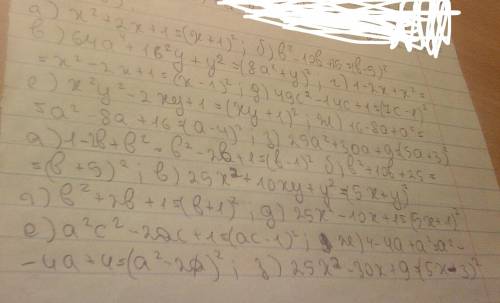 а) x²+2x+1=(x+1)²; б) b²-10b+25=(b-5)²
в) 64a²+16ay+y²=(8a+y)²; г) 1-2x+x²=
=x²-2x+1=(x-1)²; д) 49c²-14c+1=(7c-1)²
е) x²y²-2xy+1=(xy+1)²; ж) 16-8a+a²=
=a²-8a+16=(a-4)²; з) 25a²+30a+9=(5a+3)²
а) 1-2b+b²=b²-2b+1=(b-1)² б) b²+10b+25=
=(b+5)²; в) 25x²+10xy+y²=(5x+y)²
г) b²+2b+1=(b+1)²; д) 25x²-10x+1=(5x+1)²
е) a²c²-2ac+1=(ac-1)²; ж) 4-4a+a²=a²-
-4a+4=(a²-2)²; з) 25x²-30x+9=(5x-3)²